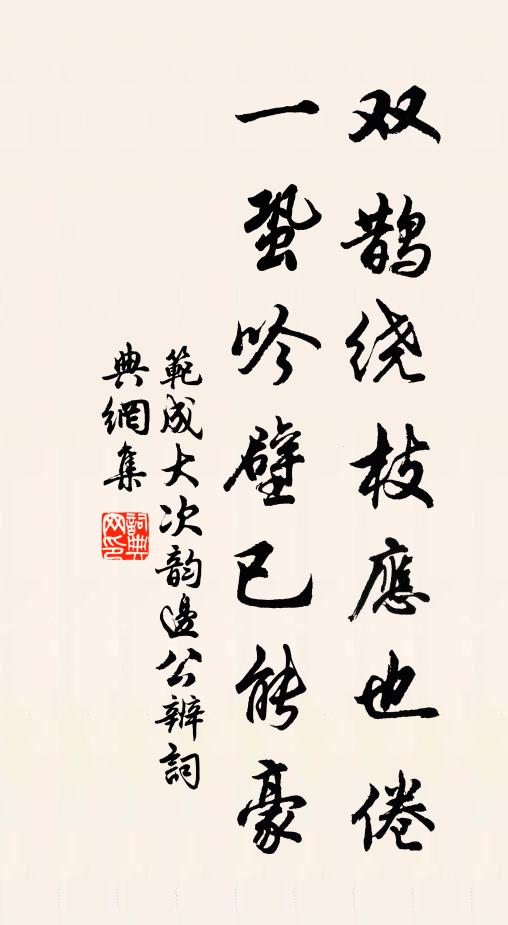 双鹊绕枝應也倦
一蛩吟壁已能豪
範成大次韵邊公辨詞
典網集
詞典
网印